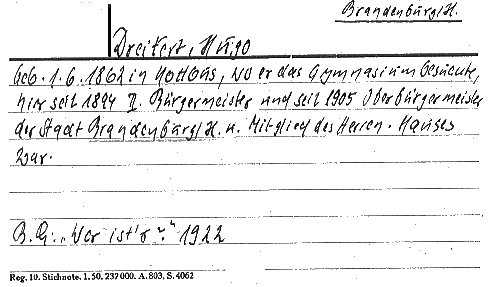 Brandenburg/H.
Dreifert, Hugo
Geb. 1.6.1862 in Kottbus, wo er das Gymnasium besuchte,
hier seit 1894 II. Bürgermeister und seit 1905 Oberbürgermeister
der Stadt Brandenburg/H. u. Mitglied des Herren-Hauses
war.
B.G. „Wer ist's?“ 1922
Reg. 10. Stichnote. 1. 50. 237000. A. 803. S. 4062